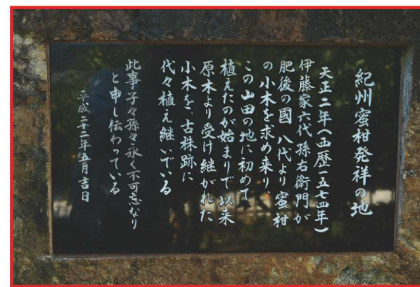 紀州蜜柑発祥の地
天正二年(西暦一五七四年)
伊藤家六代孫右衛門が
肥後の國 八代より蜜柑
の小木を求め来り
この山田の地に初めて
植えたのが始まりで 以来
原木より受け継がれた
小木を、古株跡に
代々植え継いでいる
此事子々孫々永く不可忘なり
と申し伝わっている
平成二十二年五月吉日